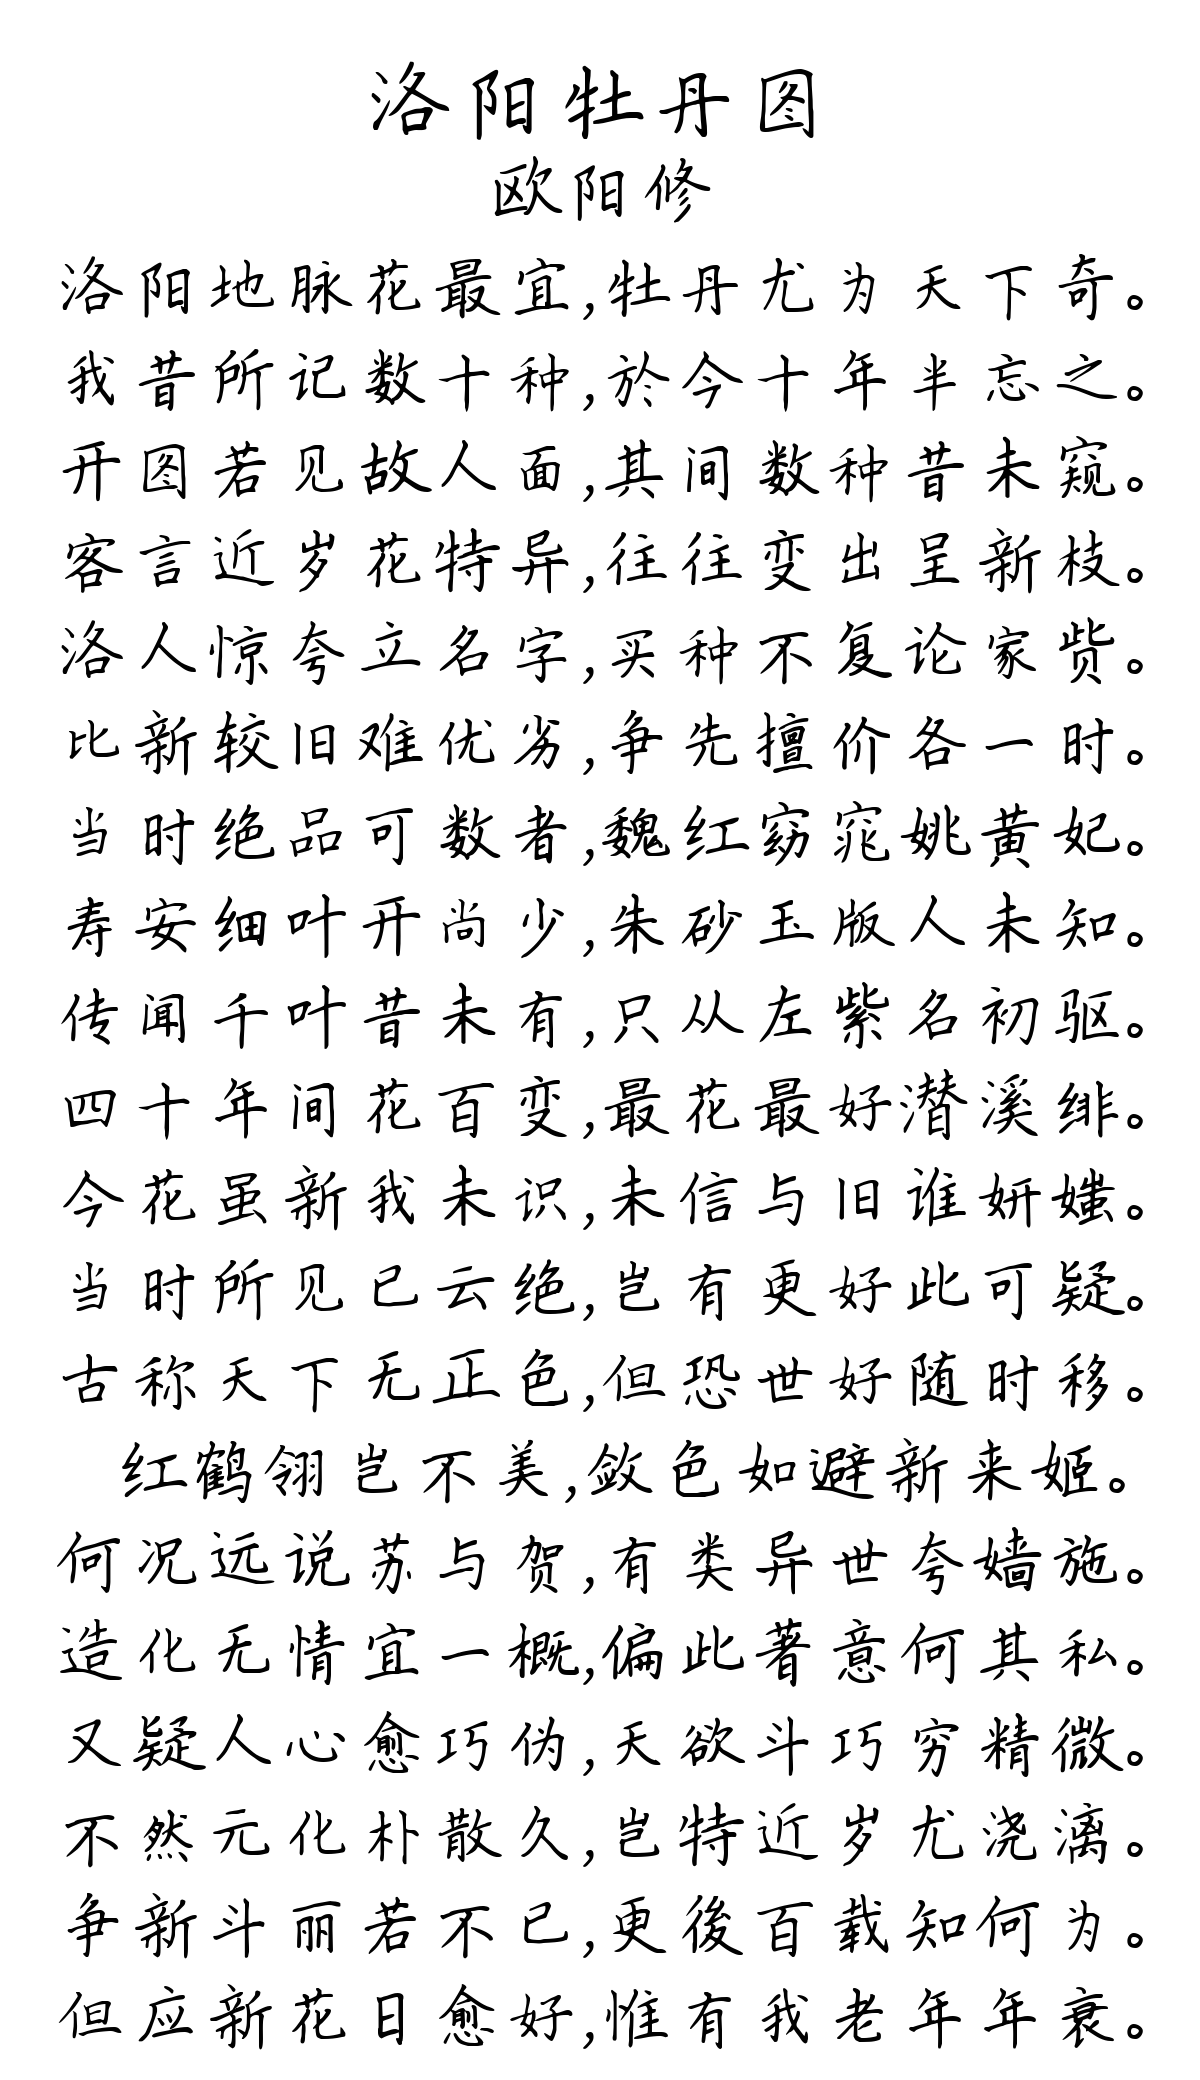 洛阳牡丹图
欧阳修
洛阳地脉花最宜,牡丹尤为天下奇。
我昔所记数十种,於今十年半忘之。
开图若见故人面,其间数种昔未窥。
客言近岁花特异,往往变出呈新枝。
洛人惊夸立名字,买种不复论家赀。
比新较旧难优劣,争先擅价各一时。
当时绝品可数者,魏红窈窕姚黄妃。
寿安细叶开尚少,朱砂玉版人未知。
传闻千叶昔未有,只从左紫名初驱。
四十年间花百变,最花最好潜溪绯。
今花虽新我未识,未信与旧谁妍媸。
当时所见已云绝,岂有更好此可疑。
古称天下无正色,但恐世好随时移。
红鹤翎岂不美,敛色如避新来姬。
何况远说苏与贺,有类异世夸嫱施。
造化无情宜一概,偏此著意何其私。
又疑人心愈巧伪,天欲斗巧穷精微。
不然元化朴散久,岂特近岁尤浇漓。
争新斗丽若不已,更後百载知何为。
但应新花日愈好,惟有我老年年衰。